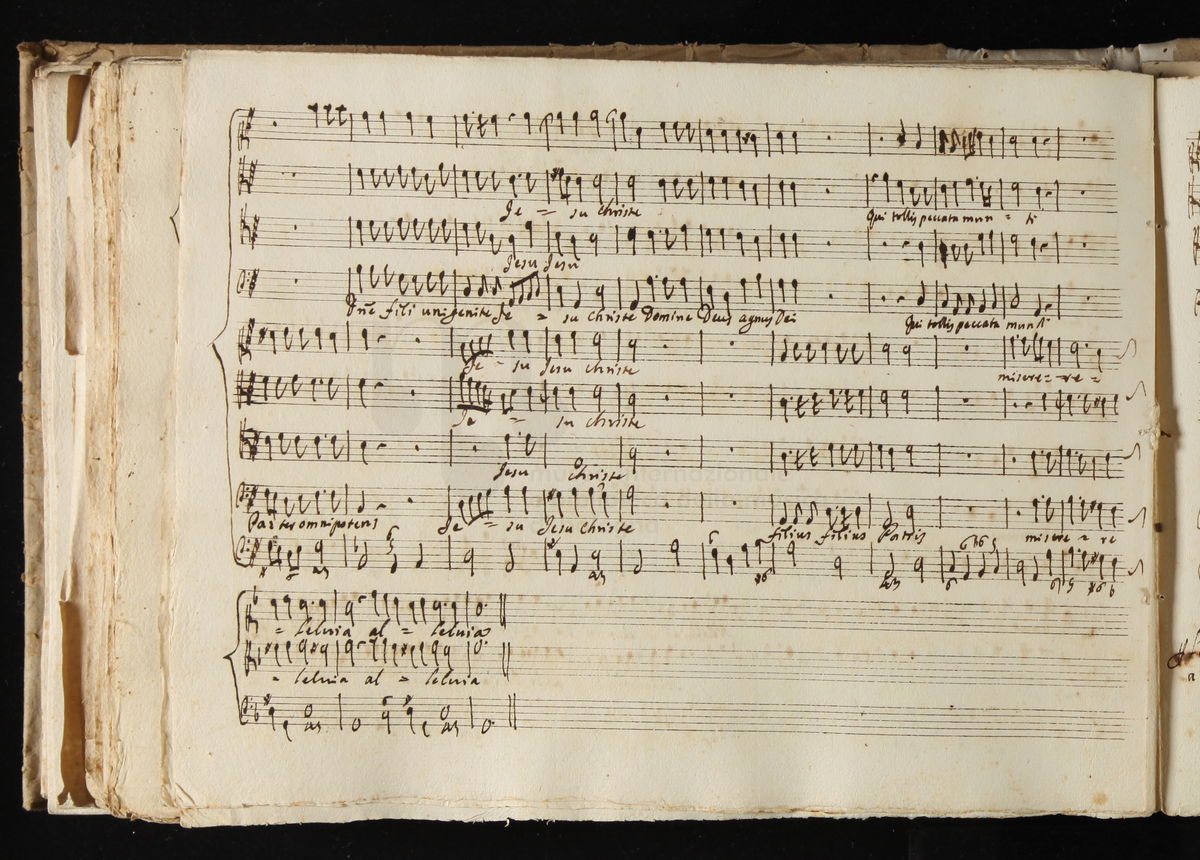 Je = su Christe Qui tollis peccata mun = di
Jesu Jesu
Dne fili unigenite Je = su Christe Domine Deus agnus Dei Qui tollis peccata mundi
Je = su Jesu Christe misere = re =
Je = su Christe
Jesu Christe
Pater omnipotens Je = su Jesu Christe filius filius Patris misere = re
= leluia al = leluia
= leluia al = leluia